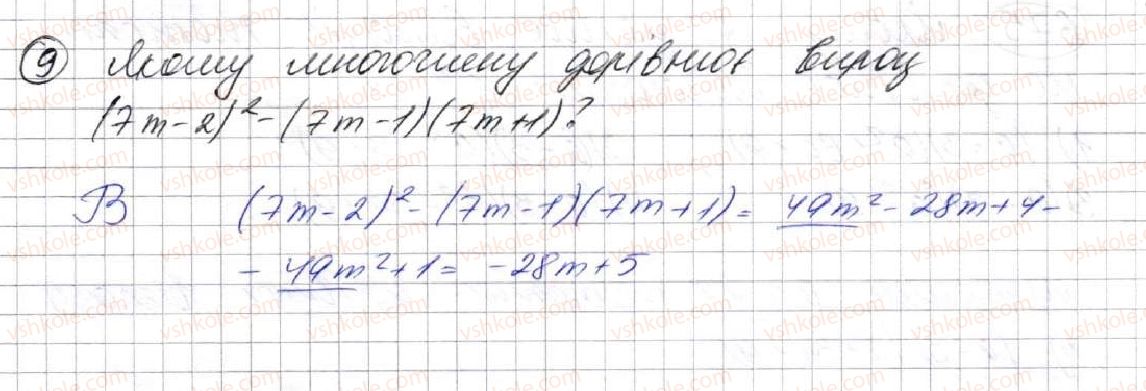 9 Якому многочлену дорівнює вираз
(7m-2)²-(7m-1)(7m+1)?
В (7m-2)²-(7m-1)(7m+1)= 49m²-28m+4-
-49m²+1= -28m+5